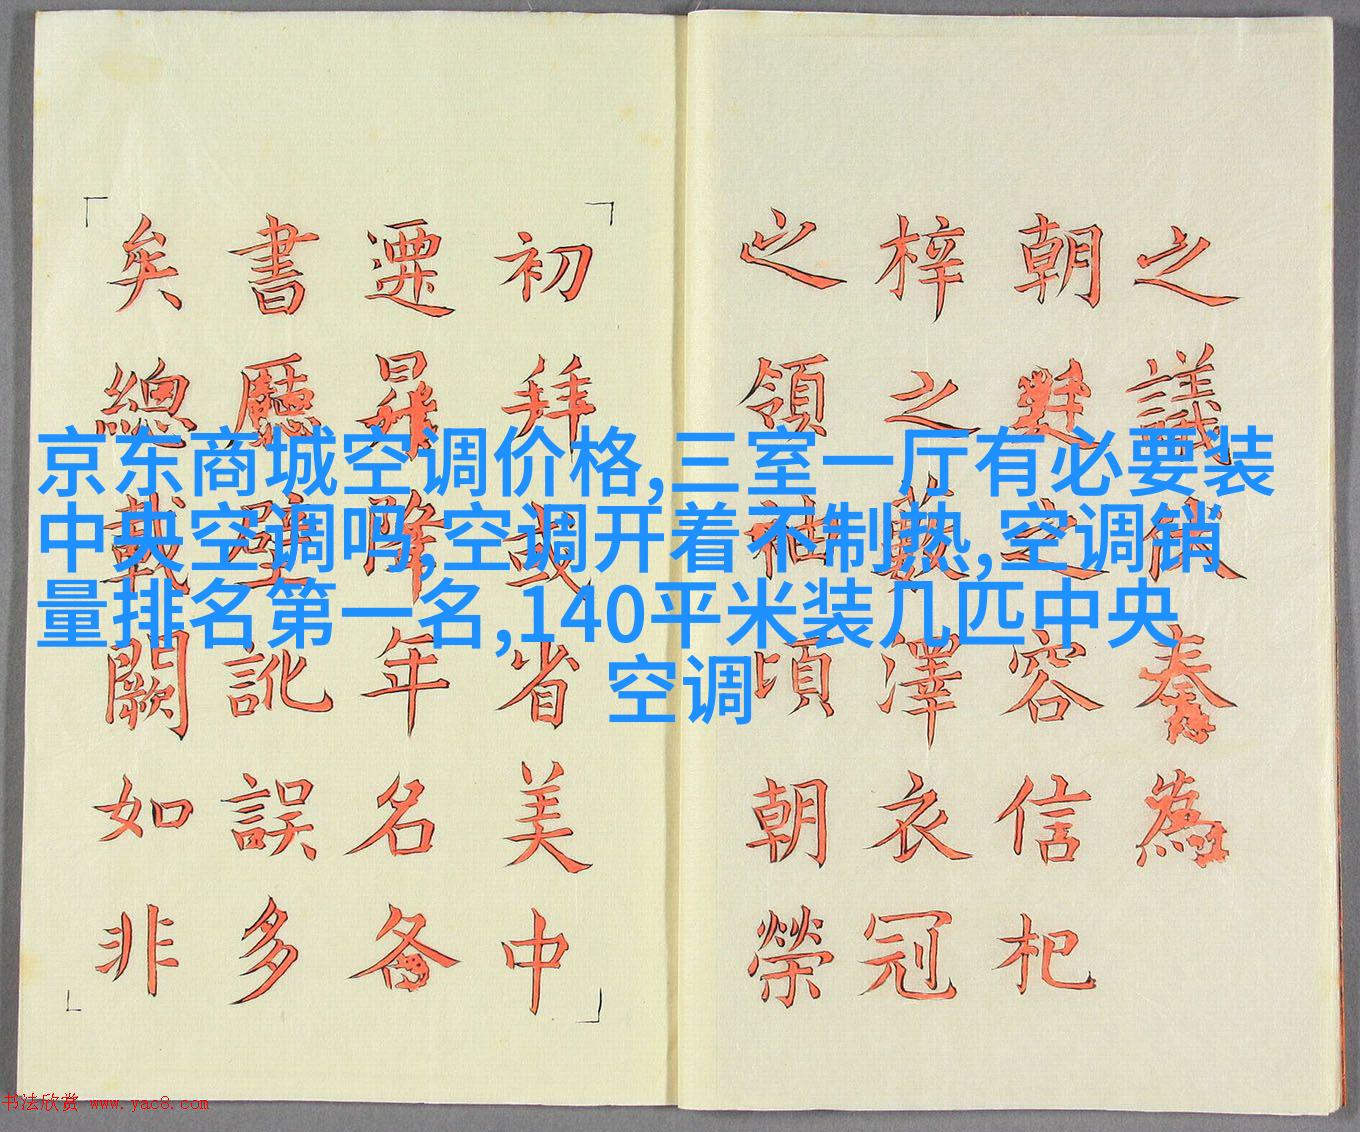 京东商城空调价格,三室一厅有必要装
中央空调吗,空调开着不制热,空调销
量排名第一名,140平米装几匹中央
空调
之議伏奏為
朝廷之容信杞
梓之藪澤衣冠
之領袖頃朝榮
初拜或省美中
遷昇降年名各
書廳壁訛誤多
矣總載闕如非
书法欣赏 www.yac8.com